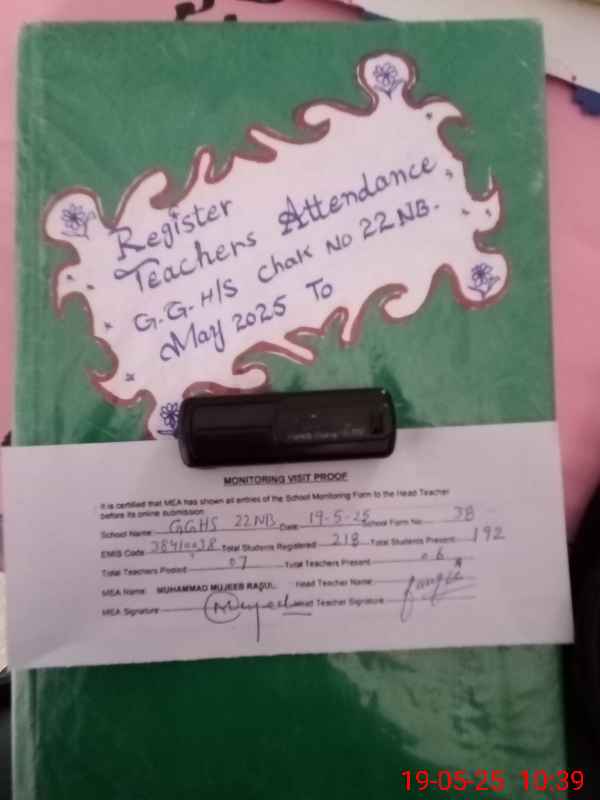 Register
Teachers Attendance
G.G.H/S Chak No 22NB.
May 2025 To
MONITORING VISIT PROOF
It is certified that MEA has shown all entries of the School Monitoring Form to the Head Teacher
before its online submission
School Name: GGHS 22NB Date 19-5-25 School Form No. 38
EMIS Code: Total Students Registered 218 Total Students Present 192
Total Teachers Posted 07 Total Teachers Present 06
MEA Name: MUHAMMAD MUJEEB RASUL Head Teacher Name:
MEA Signature Head Teacher Signature
19-05-25 10:39